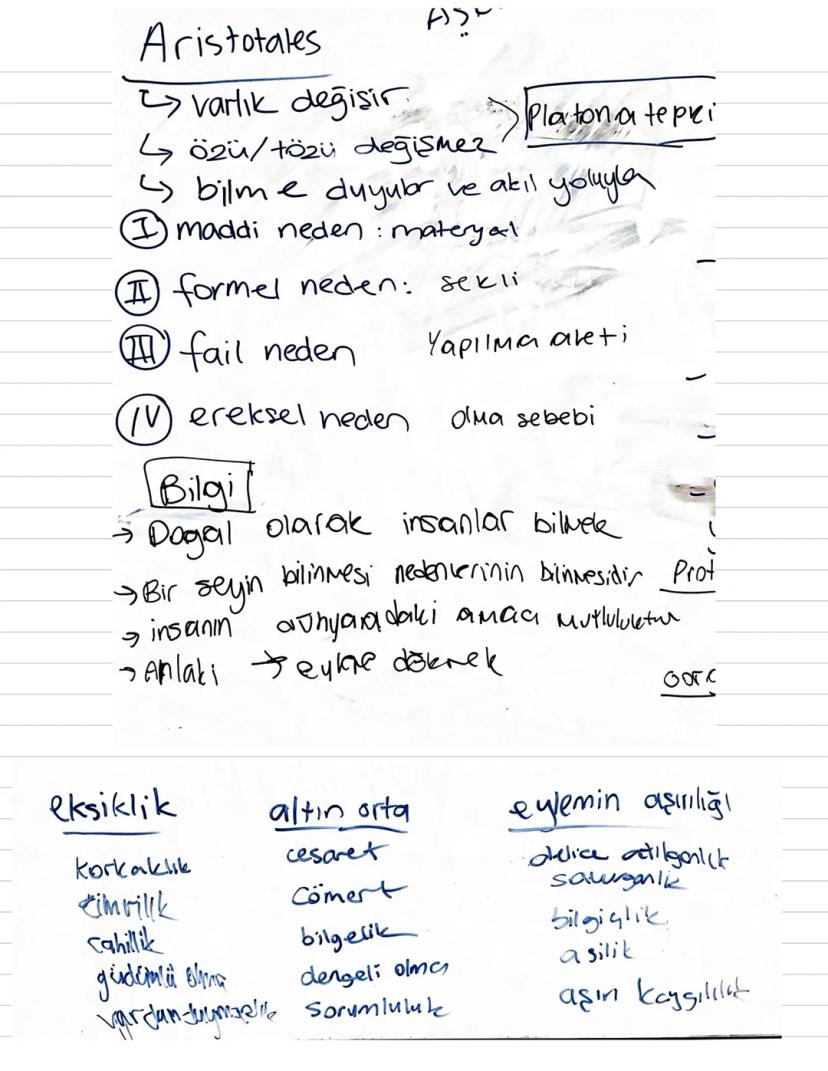 Aristotales
↳ varlık değişir
Platona tepki
↳ özü/tözü değişmez
↳ bilm e duyular ve akıl yoluyla
I maddi neden : materyal
II formel neden: sekli
III fail neden Yapılma aleti
IV ereksel neden olma sebebi
Bilgi
→ Dogal olarak insanlar bilmek
→ Bir seyin bilinmesi nedenlerinin bilinmesidir Prot
→ insanın dünyadaki amacı mutluluktur
→ Ahlaki → dökmek
Gorg
eksiklik altın orta eylemin aşırılığı
korkaklık cesaret delice atılganlık
cimrilik cömert savurganlık
cahillik bilgelik bilgiçlik
güdümlü olma dengeli olma asilik
sorumluluk aşırı kaygılılık